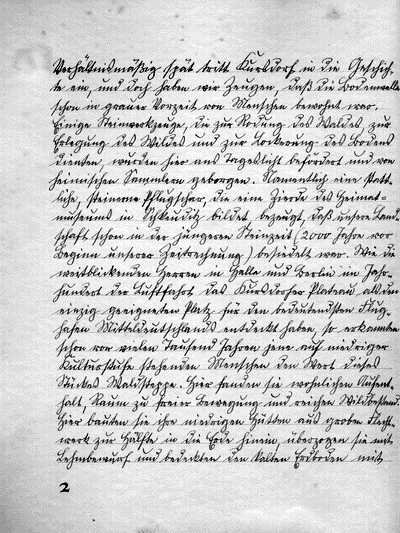 Verhältnismäßig spät tritt Kursdorf in die Geschich-
te ein, und doch haben wir Zeugen, daß die Bodenwelle
schon in grauer Vorzeit von Menschen bewohnt war.
Einige Steinwerkzeuge, die zur Rodung des Waldes, zur
Erlegung des Wildes und zur Lockerung des Bodens
dienten, wurden hier ans Tageslicht befördert und von
heimischen Sammlern geborgen. Namentlich eine statt-
liche, steinerne Pflugschar, die eine Zierde des Heimat-
museums in Schkeuditz bildet, bezeugt, daß unsere Land-
schaft schon in der jüngeren Steinzeit (2000 Jahre vor
Beginn unserer Zeitrechnung) besiedelt war. Wie die
weitblickenden Herren in Halle und Berlin im Jahr-
hundert der Luftfahrt das Kursdorfer Plateau als den
einzig geeigneten Platz für den bedeutendsten Flug-
hafen Mitteldeutschlands entdeckt haben, so erkannten
schon vor vielen Tausend Jahren jene auf niedriger
Kulturstufe stehenden Menschen den Wert dieses
Stückes Waldsteppe. Hier fanden sie wohnlichen Aufent-
halt, Raum zu freier Bewegung und reichen Wildbestand.
Hier bauten sie ihre niedrigen Hütten aus grobem Flecht-
werk zur Hälfte in die Erde hinein, überzogen sie mit
Lehmbewurf und bedeckten den kalten Erdboden mit
2